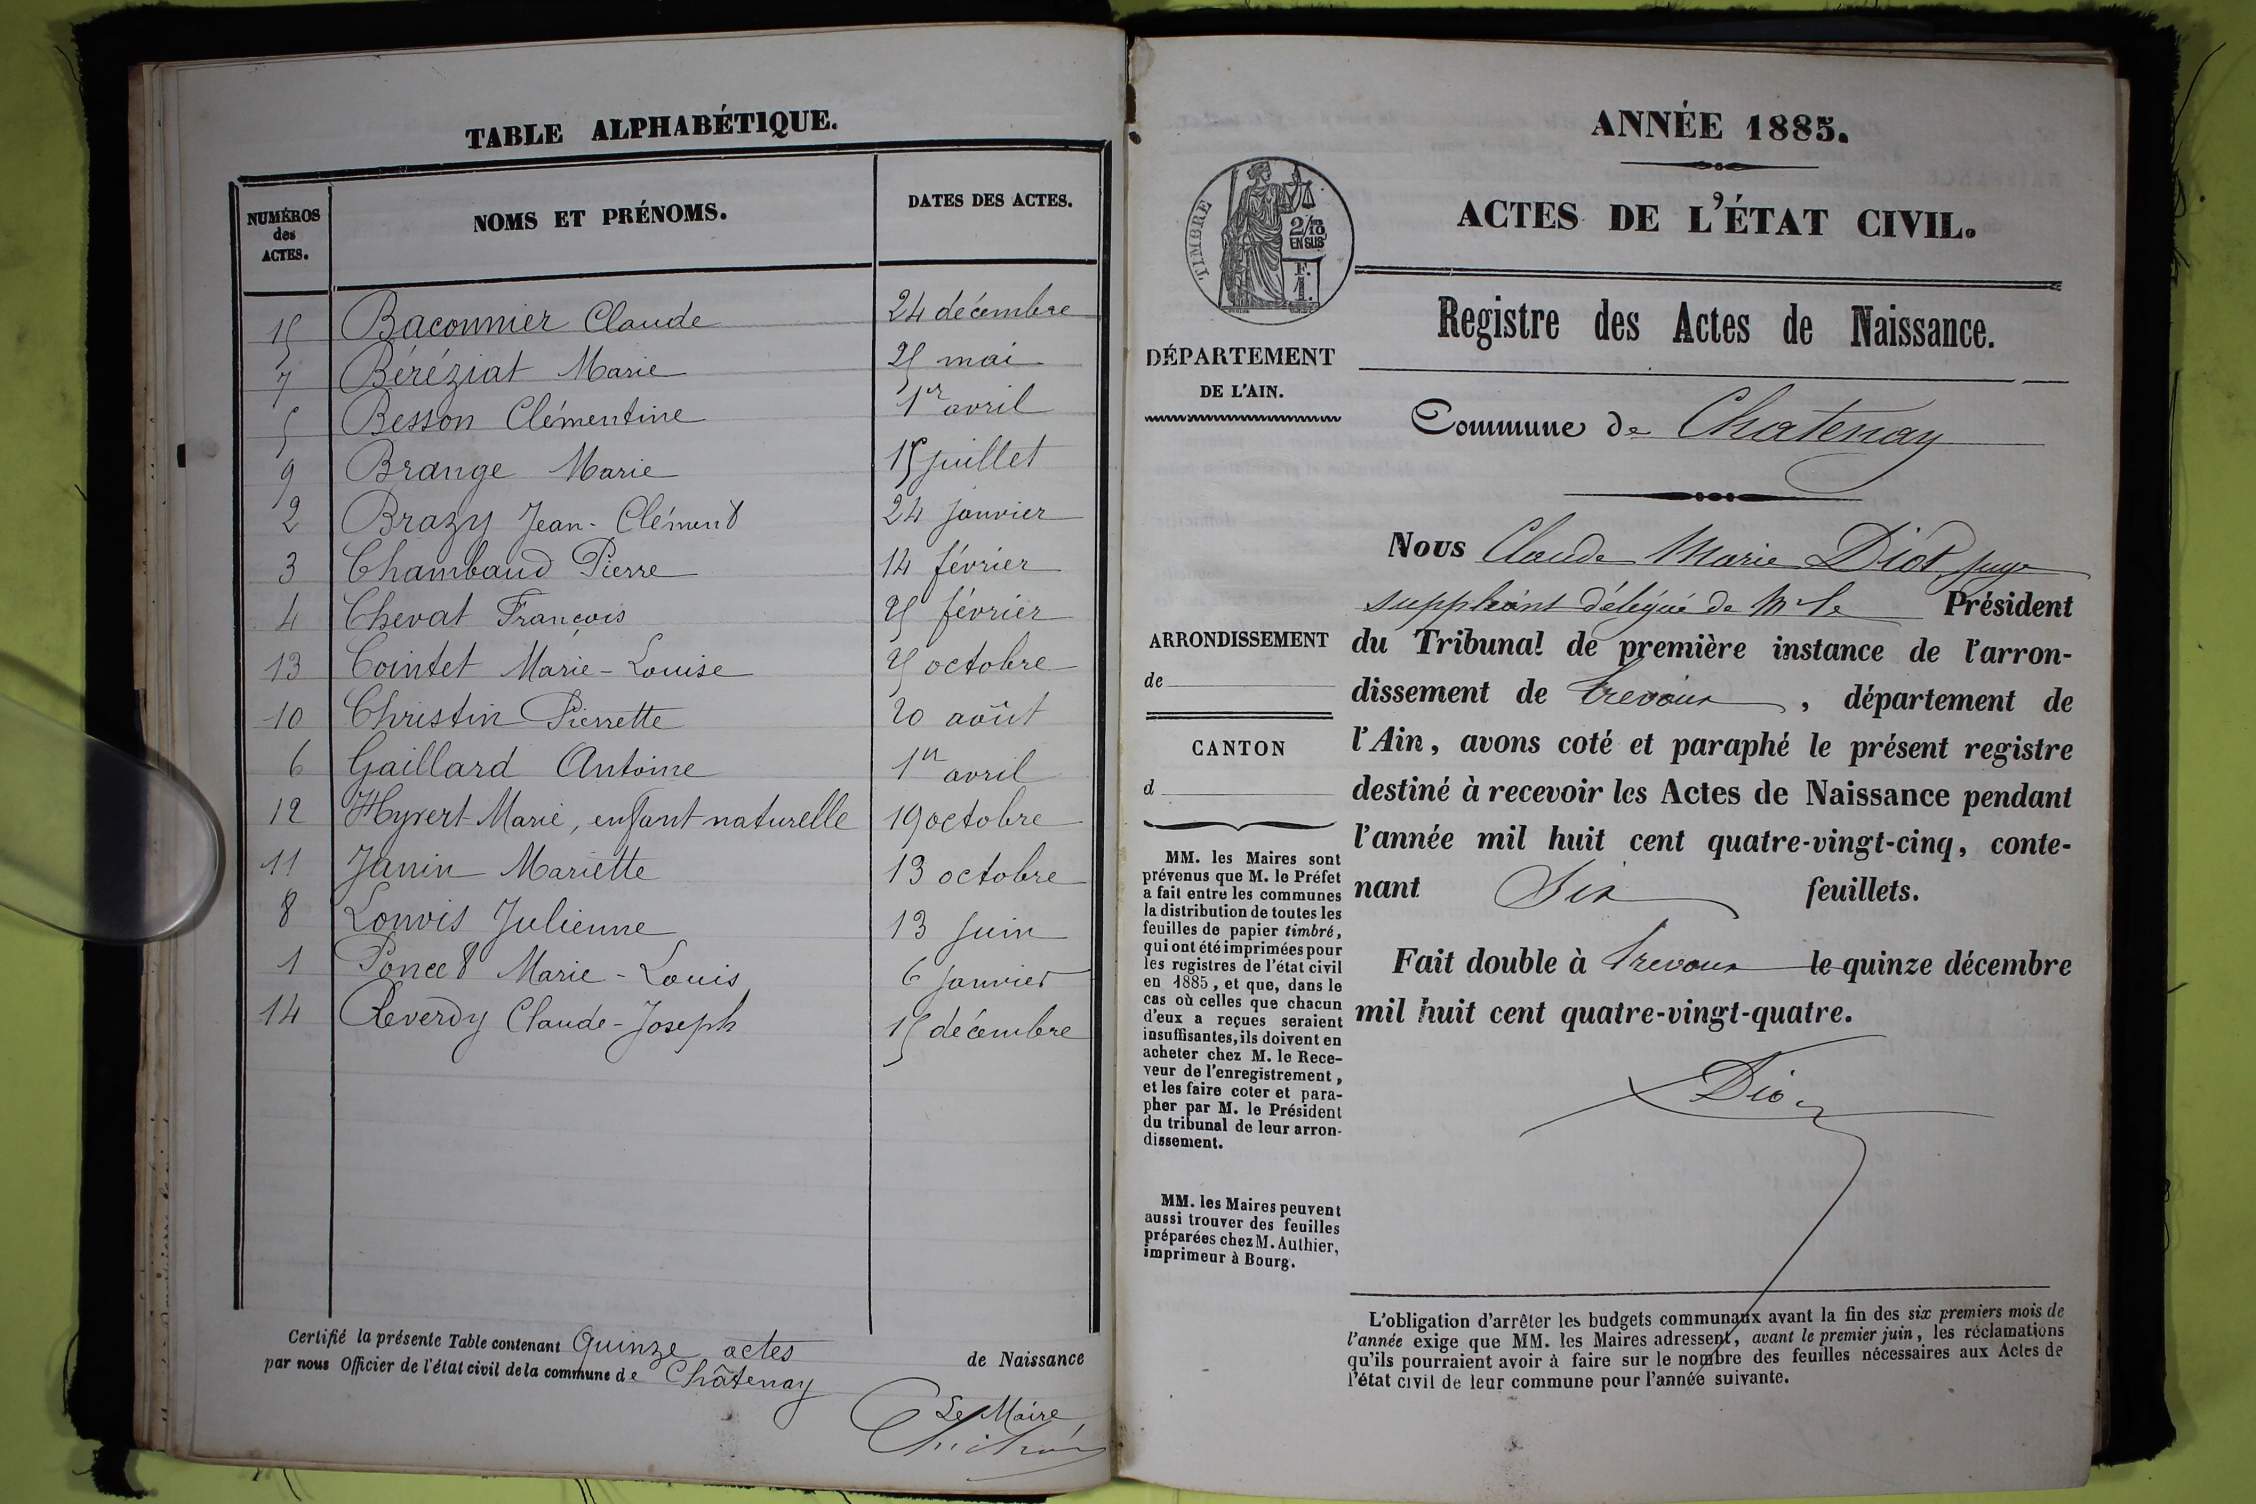 TABLE ALPHABÉTIQUE.
NUMÉROS des ACTES. NOMS ET PRÉNOMS. DATES DES ACTES.
15 Baconnier Claude 24 décembre
7 Béréziat Marie 25 mai
5 Besson Clémentine 1er avril
9 Brange Marie 15 juillet
2 Brazy Jean-Clément 24 janvier
3 Chambaud Pierre 14 février
4 Chevat François 25 février
13 Cointet Marie-Louise 25 octobre
10 Christin Pierrette 20 août
6 Gaillard Antoine 1er avril
12 Hyvert Marie, enfant naturelle 19 octobre
11 Janin Mariette 13 octobre
8 Louvis Julienne 13 juin
1 Poncet Marie-Louis 6 janvier
14 Reverdy Claude-Joseph 15 décembre
Certifié la présente Table contenant Quinze actes de Naissance
par nous Officier de l'état civil de la commune de Châtenay
Le Maire
ANNÉE 1885.
ACTES DE L'ÉTAT CIVIL.
TIMBRE
2/10 EN SUS
F. 1.
Registre des Actes de Naissance.
DÉPARTEMENT
DE L'AIN.
Commune de Chatenay
Nous Claude Marie Diot juge
suppléant délégué de Mr le Président
du Tribunal de première instance de l'arron-
dissement de Trevoux, département de
l'Ain, avons coté et paraphé le présent registre
destiné à recevoir les Actes de Naissance pendant
l'année mil huit cent quatre-vingt-cinq, conte-
nant Six feuillets.
Fait double à Trevoux le quinze décembre
mil huit cent quatre-vingt-quatre.
ARRONDISSEMENT
de
CANTON
d
MM. les Maires sont
prévenus que M. le Préfet
a fait entre les communes
la distribution de toutes les
feuilles de papier timbré,
qui ont été imprimées pour
les registres de l'état civil
en 1885, et que, dans le
cas où celles que chacun
d'eux a reçues seraient
insuffisantes, ils doivent en
acheter chez M. le Rece-
veur de l'enregistrement,
et les faire coter et para-
pher par M. le Président
du tribunal de leur arron-
dissement.
MM. les Maires peuvent
aussi trouver des feuilles
préparées chez M. Authier,
imprimeur à Bourg.
L'obligation d'arrêter les budgets communaux avant la fin des six premiers mois de
l'année exige que MM. les Maires adressent, avant le premier juin, les réclamations
qu'ils pourraient avoir à faire sur le nombre des feuilles nécessaires aux Actes de
l'état civil de leur commune pour l'année suivante.